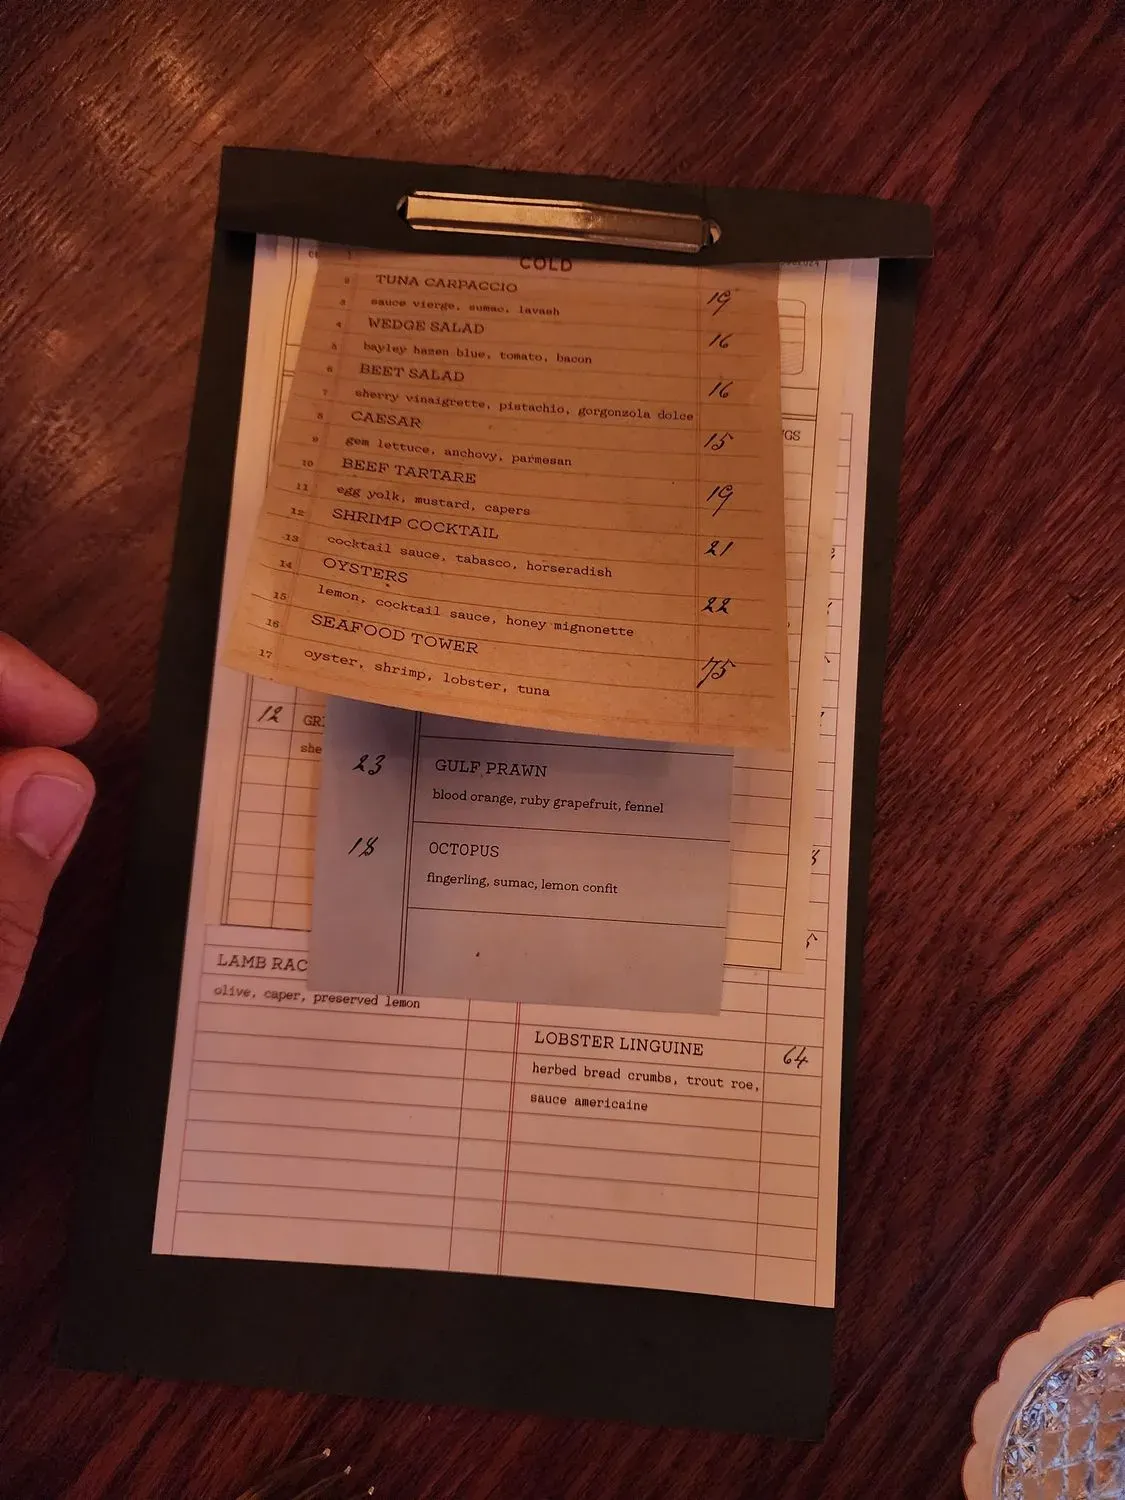 COLD
2 TUNA CARPACCIO 19
3 sauce vierge, sumac, lavash
4 WEDGE SALAD 16
5 bayley hazen blue, tomato, bacon
6 BEET SALAD 16
7 sherry vinaigrette, pistachio, gorgonzola dolce
8 CAESAR 15
9 gem lettuce, anchovy, parmesan
10 BEEF TARTARE 19
11 egg yolk, mustard, capers
12 SHRIMP COCKTAIL 21
13 cocktail sauce, tabasco, horseradish
14 OYSTERS 22
15 lemon, cocktail sauce, honey mignonette
16 SEAFOOD TOWER 75
17 oyster, shrimp, lobster, tuna
12
23 GULF PRAWN
blood orange, ruby grapefruit, fennel
18 OCTOPUS
fingerling, sumac, lemon confit
LAMB
olive, caper, preserved lemon
LOBSTER LINGUINE 64
herbed bread crumbs, trout roe,
sauce americaine